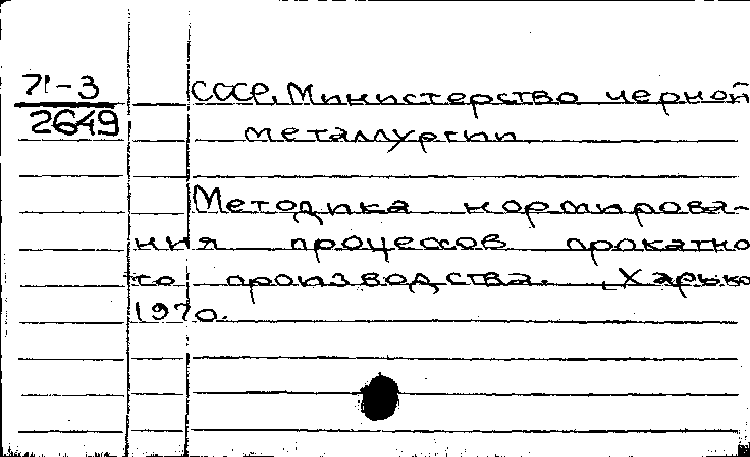 71-3
2649
СССР, Министерство черной
металлургии
Методика нормирова-
ния процессов прокатно
го производства. , Харько
1970.